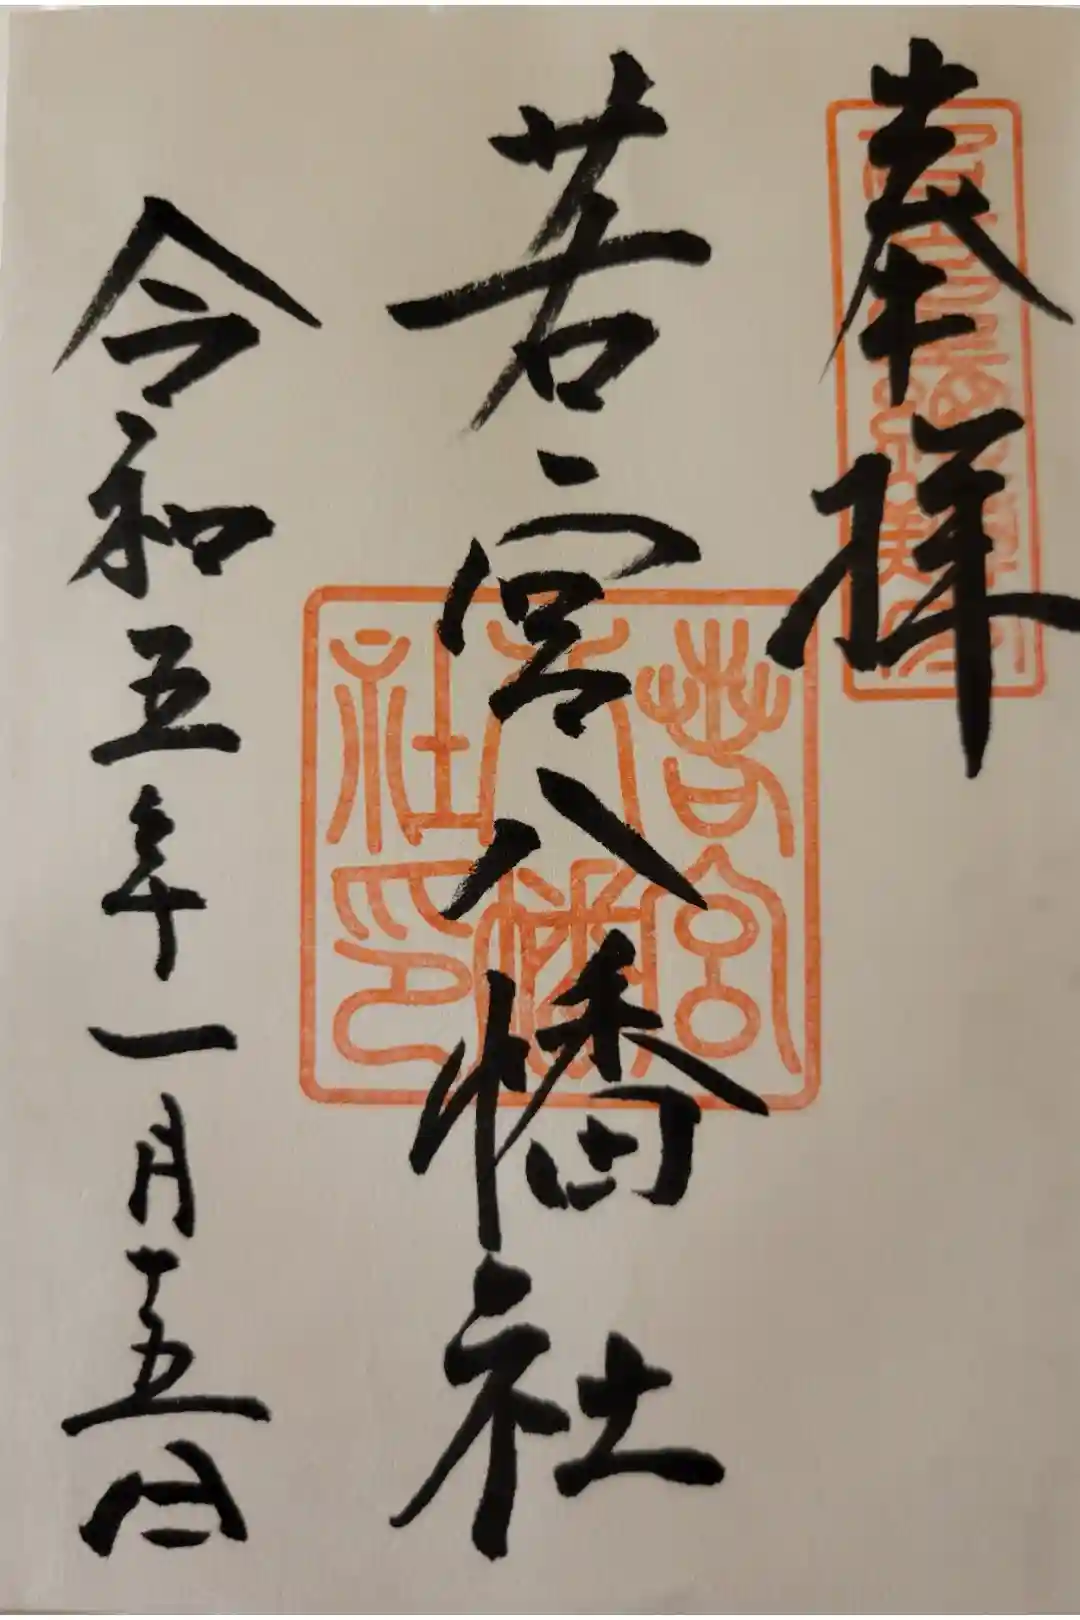 奉拝
若宮八幡社
若宮八幡社印
令和五年一月十五日